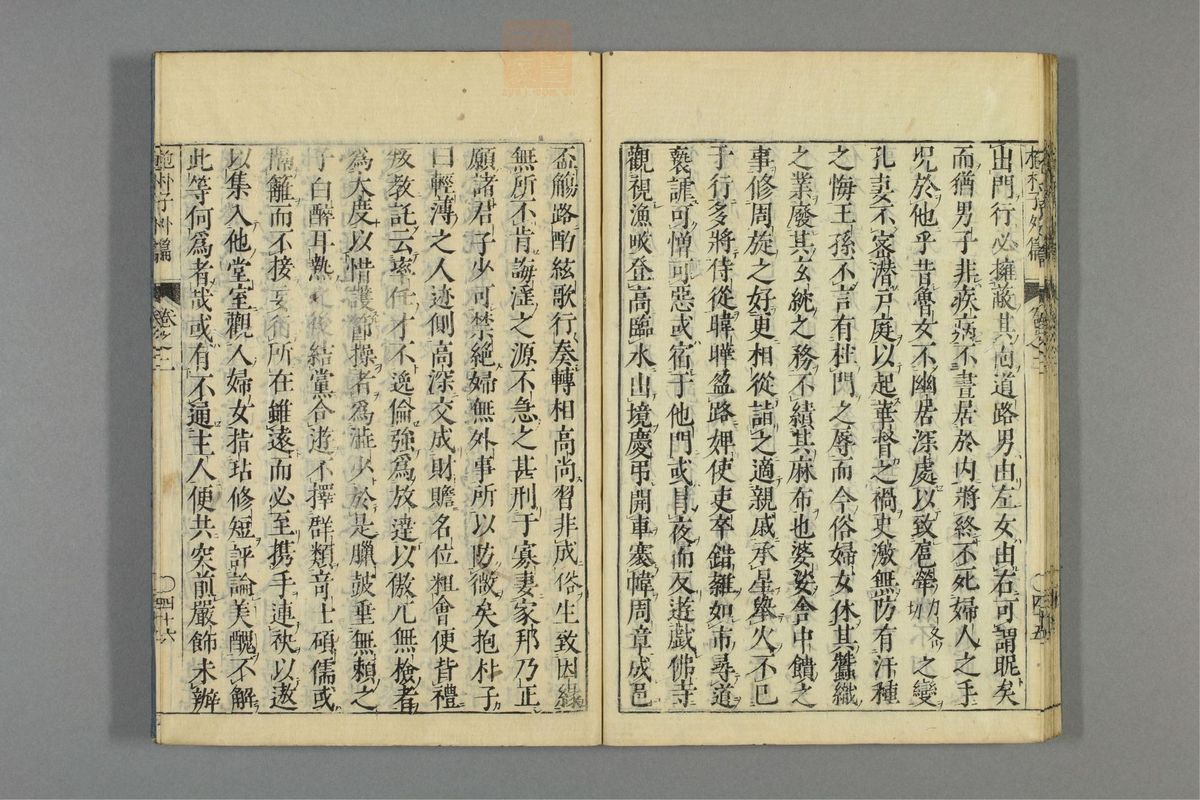 出門行必擁蔽其面道路男由左女由右可謂昵矣
而猶男子非疾病不晝居於內將終不死婦人之手
况於他乎昔魯女不幽居深處以致扈犖力各切之變
孔妻不密潛戸庭以起華督之禍史激無防有汗種
之悔王孫不言有杜門之辱而今俗婦女休其蠶織
之業廢其玄紞之務不績其麻市也婆娑舍中饋之
事修周旋之好更相從詣之適親戚承星舉火不已
于行多將侍從暐曄盈路婢使吏卒錯雜如市尋道
褻謔可憎可惡或宿于他門或冒夜而反遊戲佛寺
觀視漁畋登高臨水出境慶弔開車褰幃周章成邑
盃觴路酌絃歌行奏轉相高尚習非成俗生致因緣
無所不肯誨淫之源不急之甚刑于寡妻家邦乃正
願諸君子少可禁絕婦無外事所以防微矣抱朴子
曰輕薄之人迹側高深交成財贍名位粗會便背禮
叛教託云率任才不逸倫強為放達以傲兀無檢者
為大度以惜護節操者為澁少於是臘鼓垂無賴之
子白醉耳熱之後結黨合遊不擇群類奇士碩儒或
隔籬而不接妄行所在雖遠而必至携手連袂以遨
以集入他堂室觀人婦女指玷修短評論美醜不解
此等何爲者哉或有不通主人便共突前嚴飾未辦
抱朴子外篇
卷之二
四十五
四十六